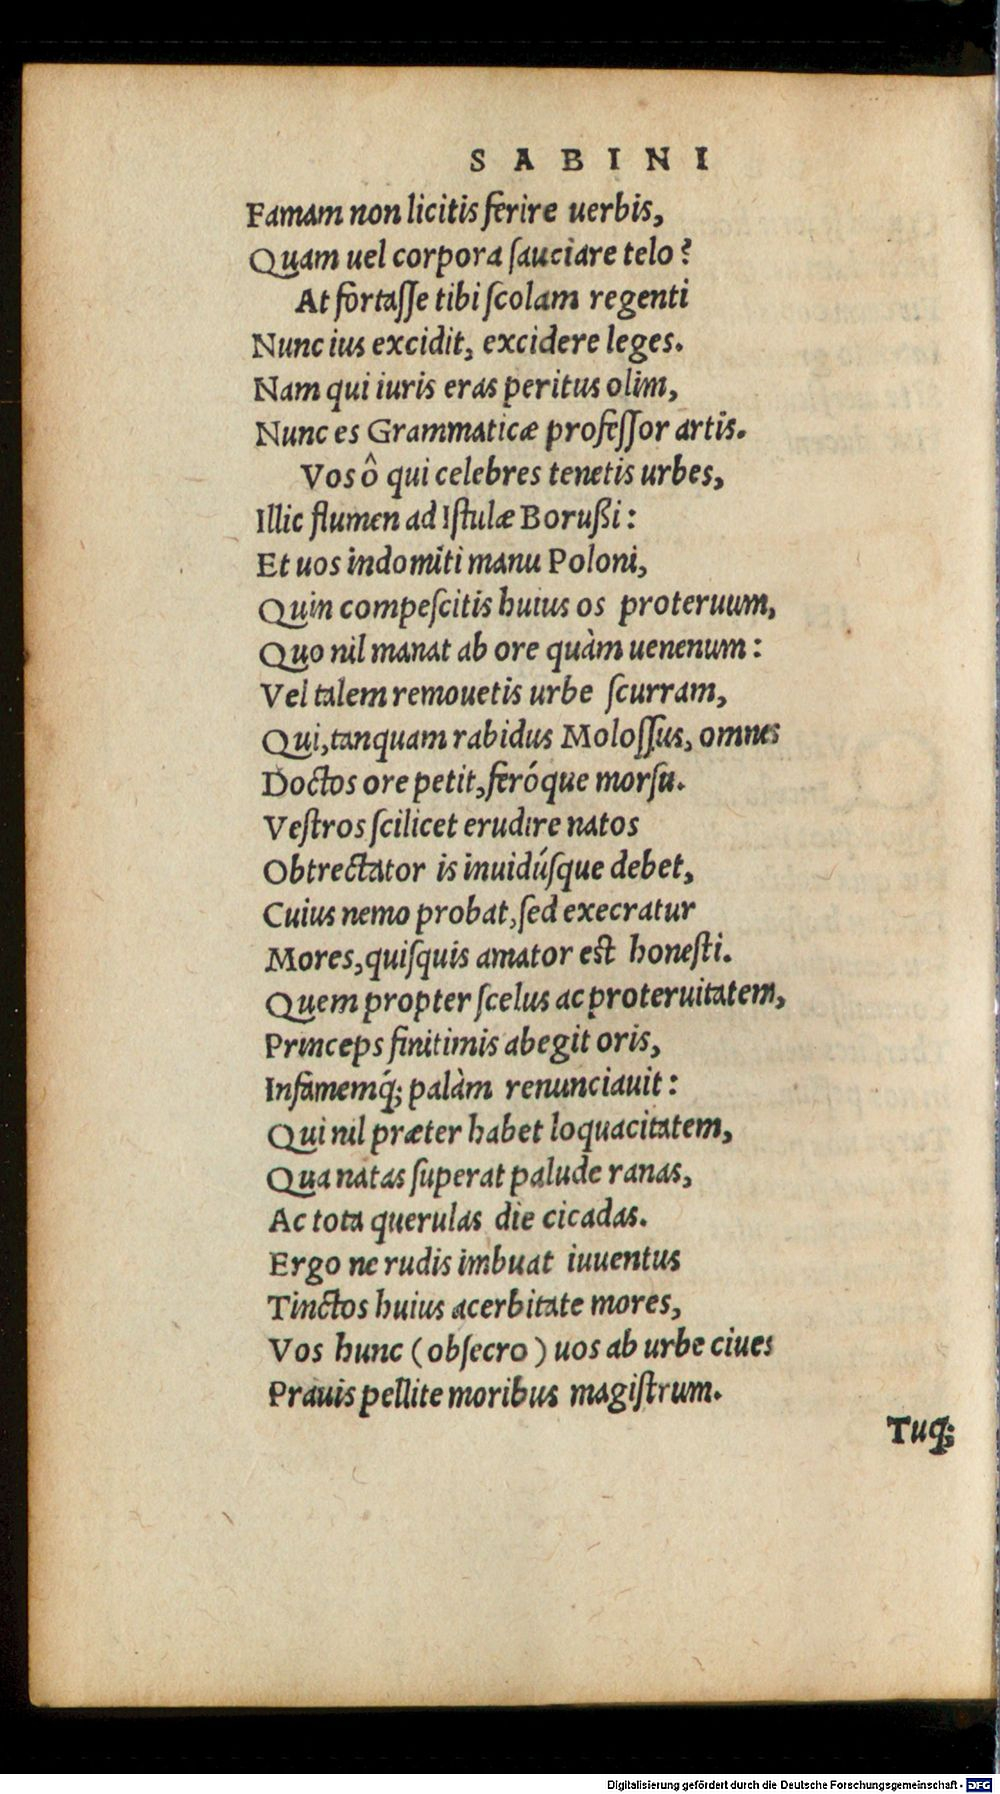 SABINI
Famam non licitis ferire uerbis,
Quam uel corpora ſauciare telo?
At fortaſſe tibi ſcolam regenti
Nunc ius excidit, excidere leges.
Nam qui iuris eras peritus olim,
Nunc es Grammaticæ profeſſor artis.
Vos ô qui celebres tenetis urbes,
Illic flumen ad Iſtulæ Borußi:
Et uos indomiti manu Poloni,
Quin compeſcitis huius os proteruum,
Quo nil manat ab ore quàm uenenum:
Vel talem remouetis urbe ſcurram,
Qui, tanquam rabidus Moloſſus, omnes
Doctos ore petit, feróque morſu.
Veſtros ſcilicet erudire natos
Obtrectator is inuidúſque debet,
Cuius nemo probat, ſed execratur
Mores, quiſquis amator est honeſti.
Quem propter ſcelus ac proteruitatem,
Princeps finitimis abegit oris,
Infámemq́; palàm renunciauit:
Qui nil præter habet loquacitatem,
Qua natas ſuperat palude ranas,
Ac tota querulas die cicadas.
Ergo ne rudis imbuat iuuentus
Tinctos huius acerbitate mores,
Vos hunc (obſecro) uos ab urbe ciues
Prauis pellite moribus magiſtrum.
Tuq́;
Digitalisierung gefördert durch die Deutsche Forschungsgemeinschaft - DFG